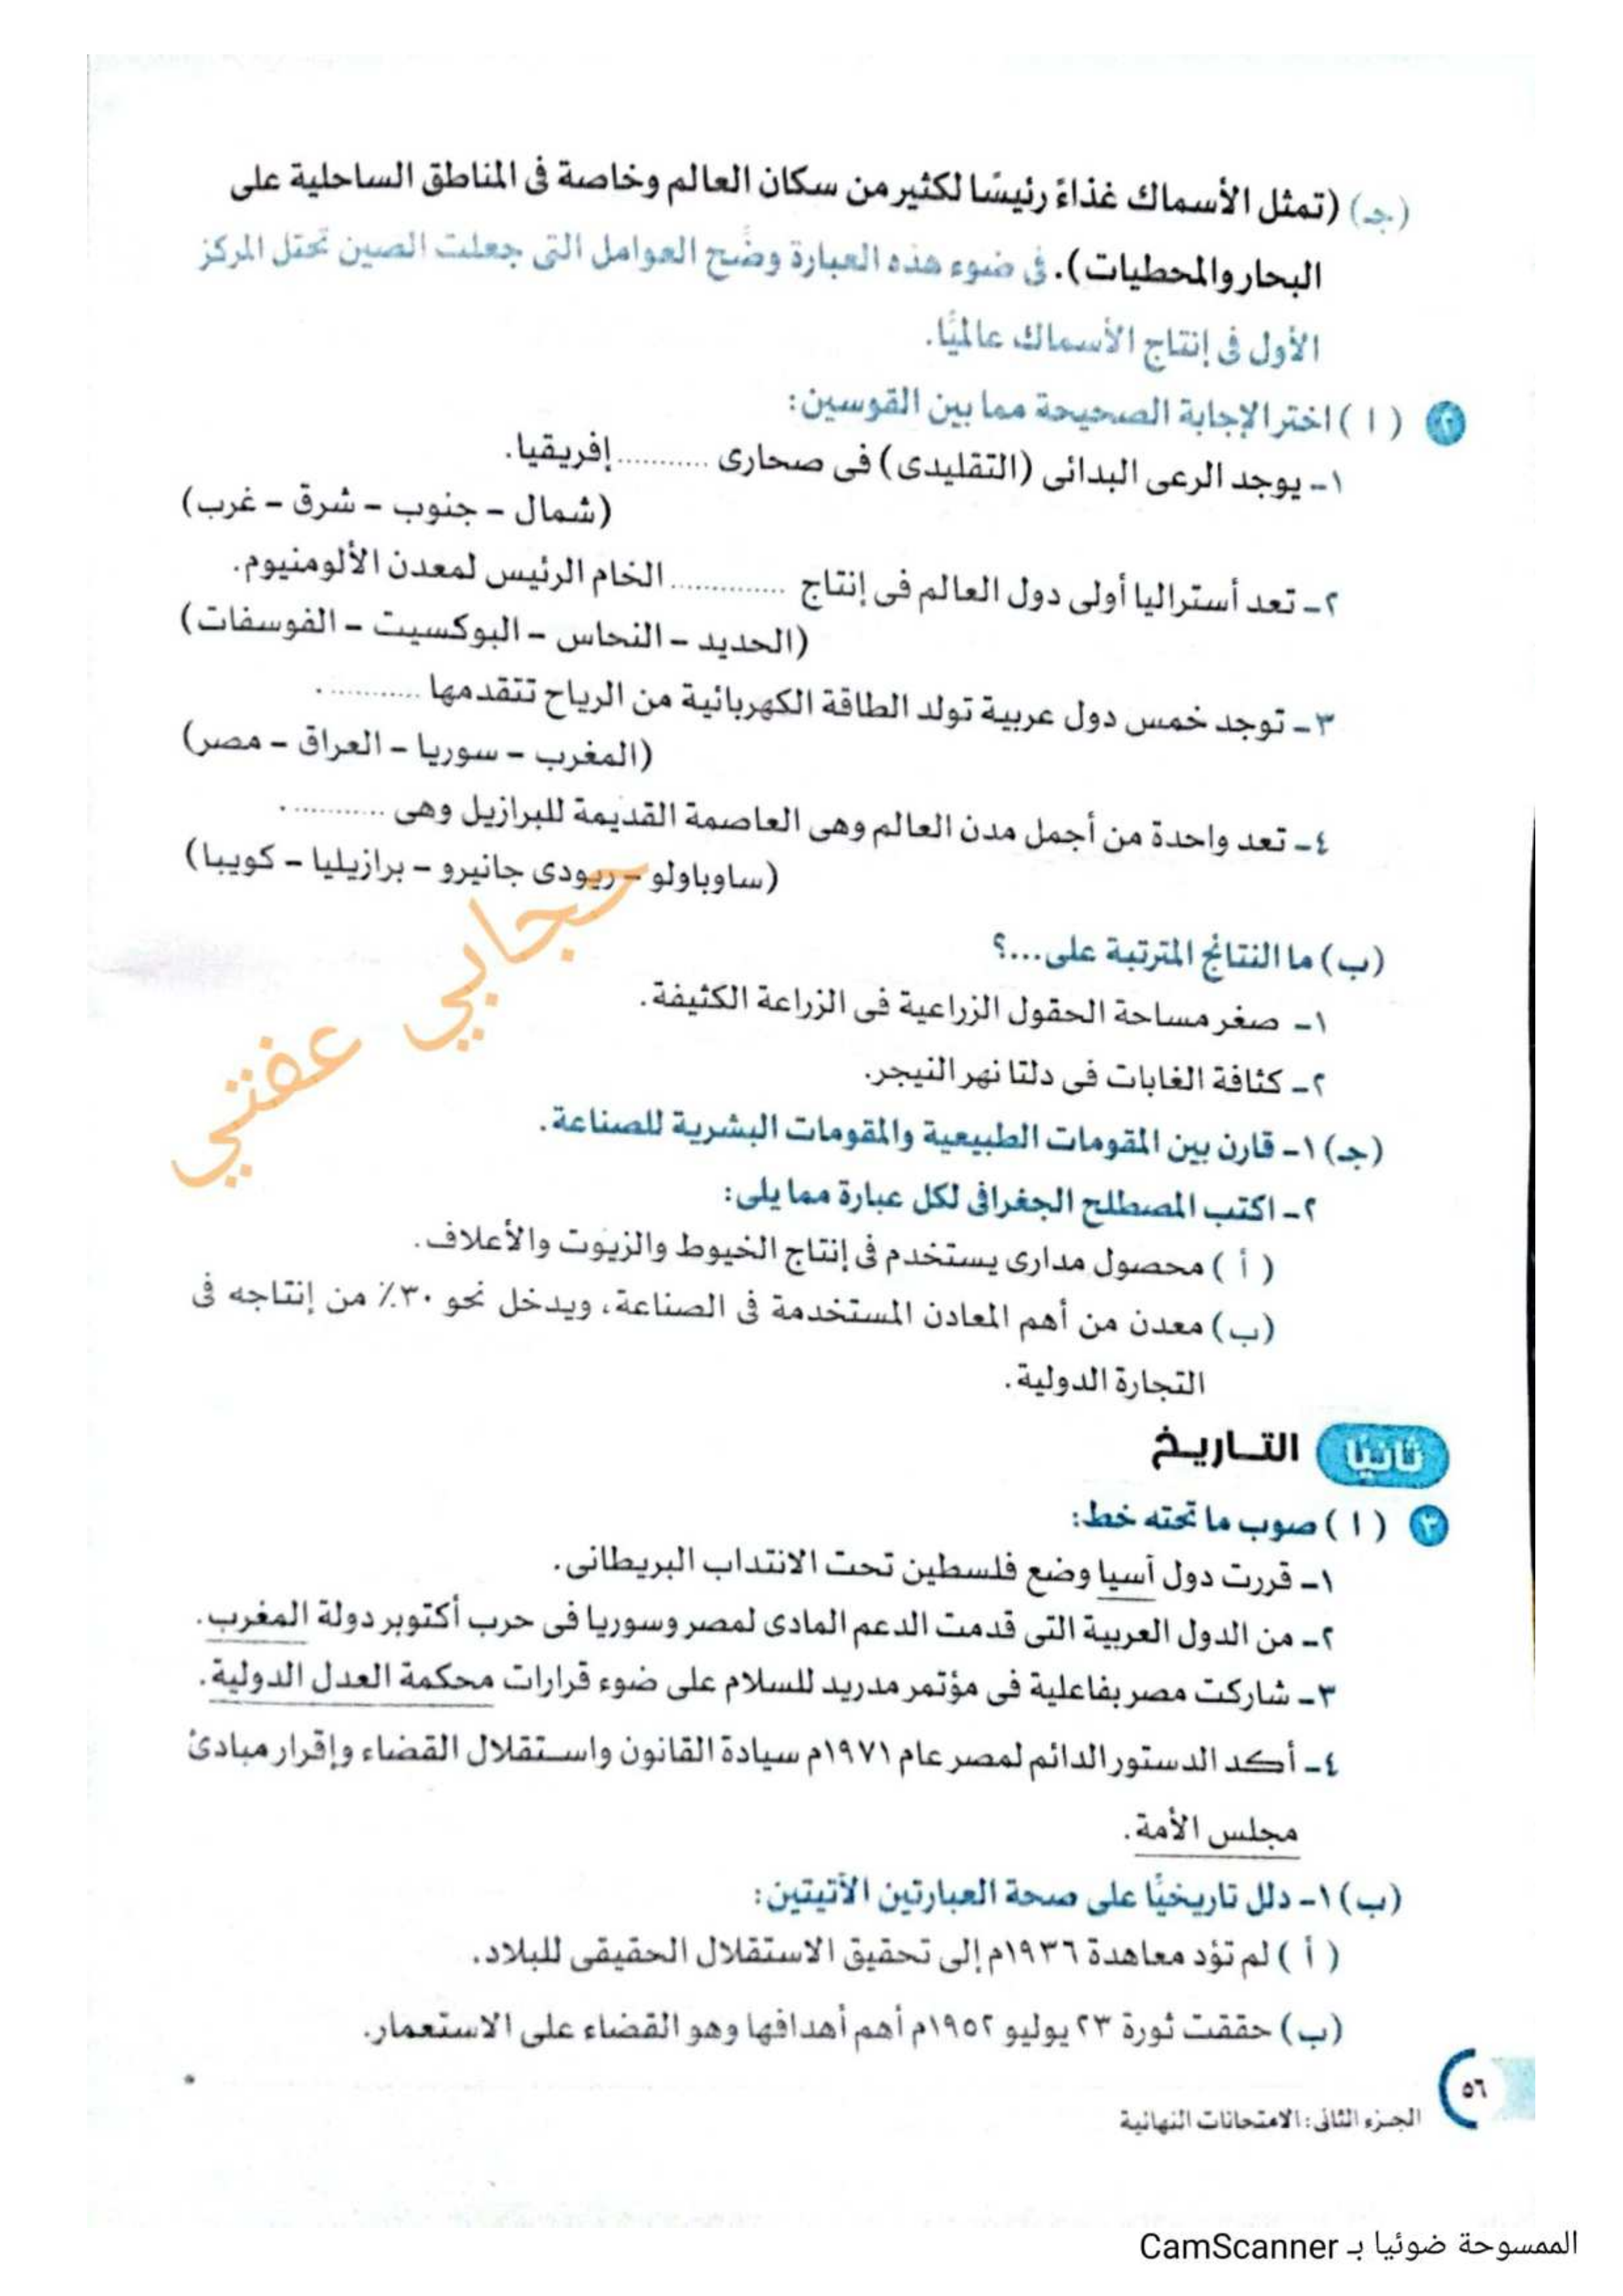 (جـ) (تمثل الأسماك غذاءً رئيسًا لكثير من سكان العالم وخاصة فى المناطق الساحلية على
البحار والمحطيات). فى ضوء هذه العبارة وضَّح العوامل التى جعلت الصين تحتل المركز
الأول فى إنتاج الأسماك عالميًّا.
٢ ( ١ ) اختر الإجابة الصحيحة مما بين القوسين:
١- يوجد الرعى البدائى (التقليدى) فى صحارى ........... إفريقيا.
(شمال - جنوب - شرق - غرب)
٢- تعد أستراليا أولى دول العالم فى إنتاج ............. الخام الرئيس لمعدن الألومنيوم.
(الحديد - النحاس - البوكسيت - الفوسفات)
٣- توجد خمس دول عربية تولد الطاقة الكهربائية من الرياح تتقدمها ............
(المغرب - سوريا - العراق - مصر)
٤- تعد واحدة من أجمل مدن العالم وهى العاصمة القديمة للبرازيل وهى ............
(ساوباولو - ريودى جانيرو - برازيليا - كويبا)
(ب) ما النتائج المترتبة على...؟
١- صغر مساحة الحقول الزراعية فى الزراعة الكثيفة.
٢- كثافة الغابات فى دلتا نهر النيجر.
حجابي عفتي
(جـ) ١- قارن بين المقومات الطبيعية والمقومات البشرية للصناعة.
٢- اكتب المصطلح الجغرافى لكل عبارة مما يلى:
( أ ) محصول مدارى يستخدم فى إنتاج الخيوط والزيوت والأعلاف.
(ب) معدن من أهم المعادن المستخدمة فى الصناعة، ويدخل نحو ٣٠٪ من إنتاجه فى
التجارة الدولية.
ثانيًا التـاريـخ
٣ ( ١ ) صوب ما تحته خط:
١- قررت دول آسيا وضع فلسطين تحت الانتداب البريطانى.
٢- من الدول العربية التى قدمت الدعم المادى لمصر وسوريا فى حرب أكتوبر دولة المغرب.
٣- شاركت مصر بفاعلية فى مؤتمر مدريد للسلام على ضوء قرارات محكمة العدل الدولية.
٤- أكد الدستور الدائم لمصر عام ١٩٧١م سيادة القانون واستقلال القضاء وإقرار مبادئ
مجلس الأمة.
(ب) ١- دلل تاريخيًا على صحة العبارتين الآتيتين:
( أ ) لم تؤد معاهدة ١٩٣٦م إلى تحقيق الاستقلال الحقيقى للبلاد.
(ب) حققت ثورة ٢٣ يوليو ١٩٥٢م أهم أهدافها وهو القضاء على الاستعمار.
٥٦
الجزء الثانى: الامتحانات النهائية
الممسوحة ضوئيا بـ CamScanner